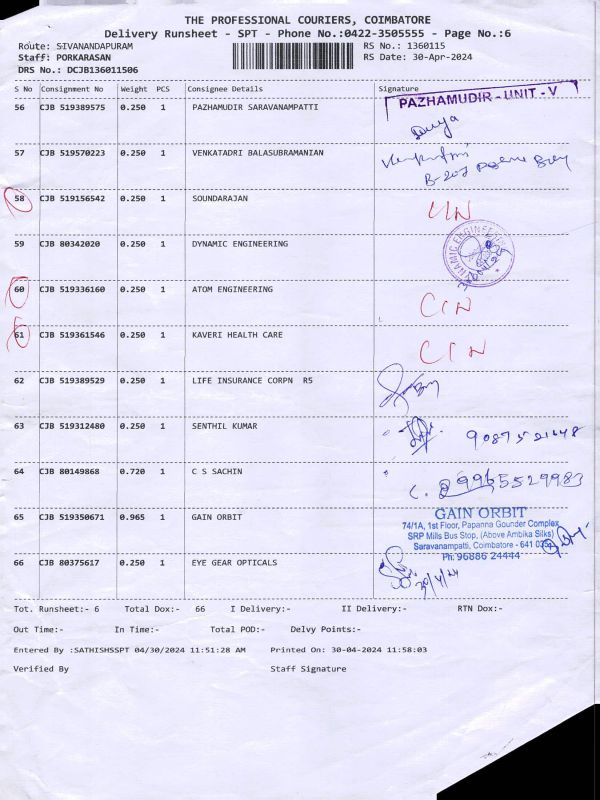 THE PROFESSIONAL COURIERS, COIMBATORE
Delivery Runsheet - SPT - Phone No.:0422-3505555 - Page No.:6
Route: SIVANANDAPURAM RS No.: 1360115
Staff: PORKARASAN RS Date: 30-Apr-2024
DRS No.: DCJB136011506
S No Consignment No Weight PCS Consignee Details Signature
PAZHAMUDIR - UNIT - V
56 CJB 519389575 0.250 1 PAZHAMUDIR SARAVANAMPATTI
57 CJB 519570223 0.250 1 VENKATADRI BALASUBRAMANIAN
58 CJB 519156542 0.250 1 SOUNDARAJAN
59 CJB 80342020 0.250 1 DYNAMIC ENGINEERING
60 CJB 519336160 0.250 1 ATOM ENGINEERING CIN
61 CJB 519361546 0.250 1 KAVERI HEALTH CARE CIN
62 CJB 519389529 0.250 1 LIFE INSURANCE CORPN R5
63 CJB 519312480 0.250 1 SENTHIL KUMAR
64 CJB 80149868 0.720 1 C S SACHIN 9965529983
65 CJB 519350671 0.965 1 GAIN ORBIT
GAIN ORBIT
74/1A, 1st Floor, Papanna Gounder Complex
SRP Mills Bus Stop, (Above Ambika Silks)
Saravanampatti, Coimbatore - 641 035
Ph: 96886 24444
66 CJB 80375617 0.250 1 EYE GEAR OPTICALS
30/4/24
Tot. Runsheet:- 6 Total Dox:- 66 I Delivery:- II Delivery:- RTN Dox:-
Out Time:- In Time:- Total POD:- Delvy Points:-
Entered By :SATHISHSSPT 04/30/2024 11:51:28 AM Printed On: 30-04-2024 11:58:03
Verified By Staff Signature